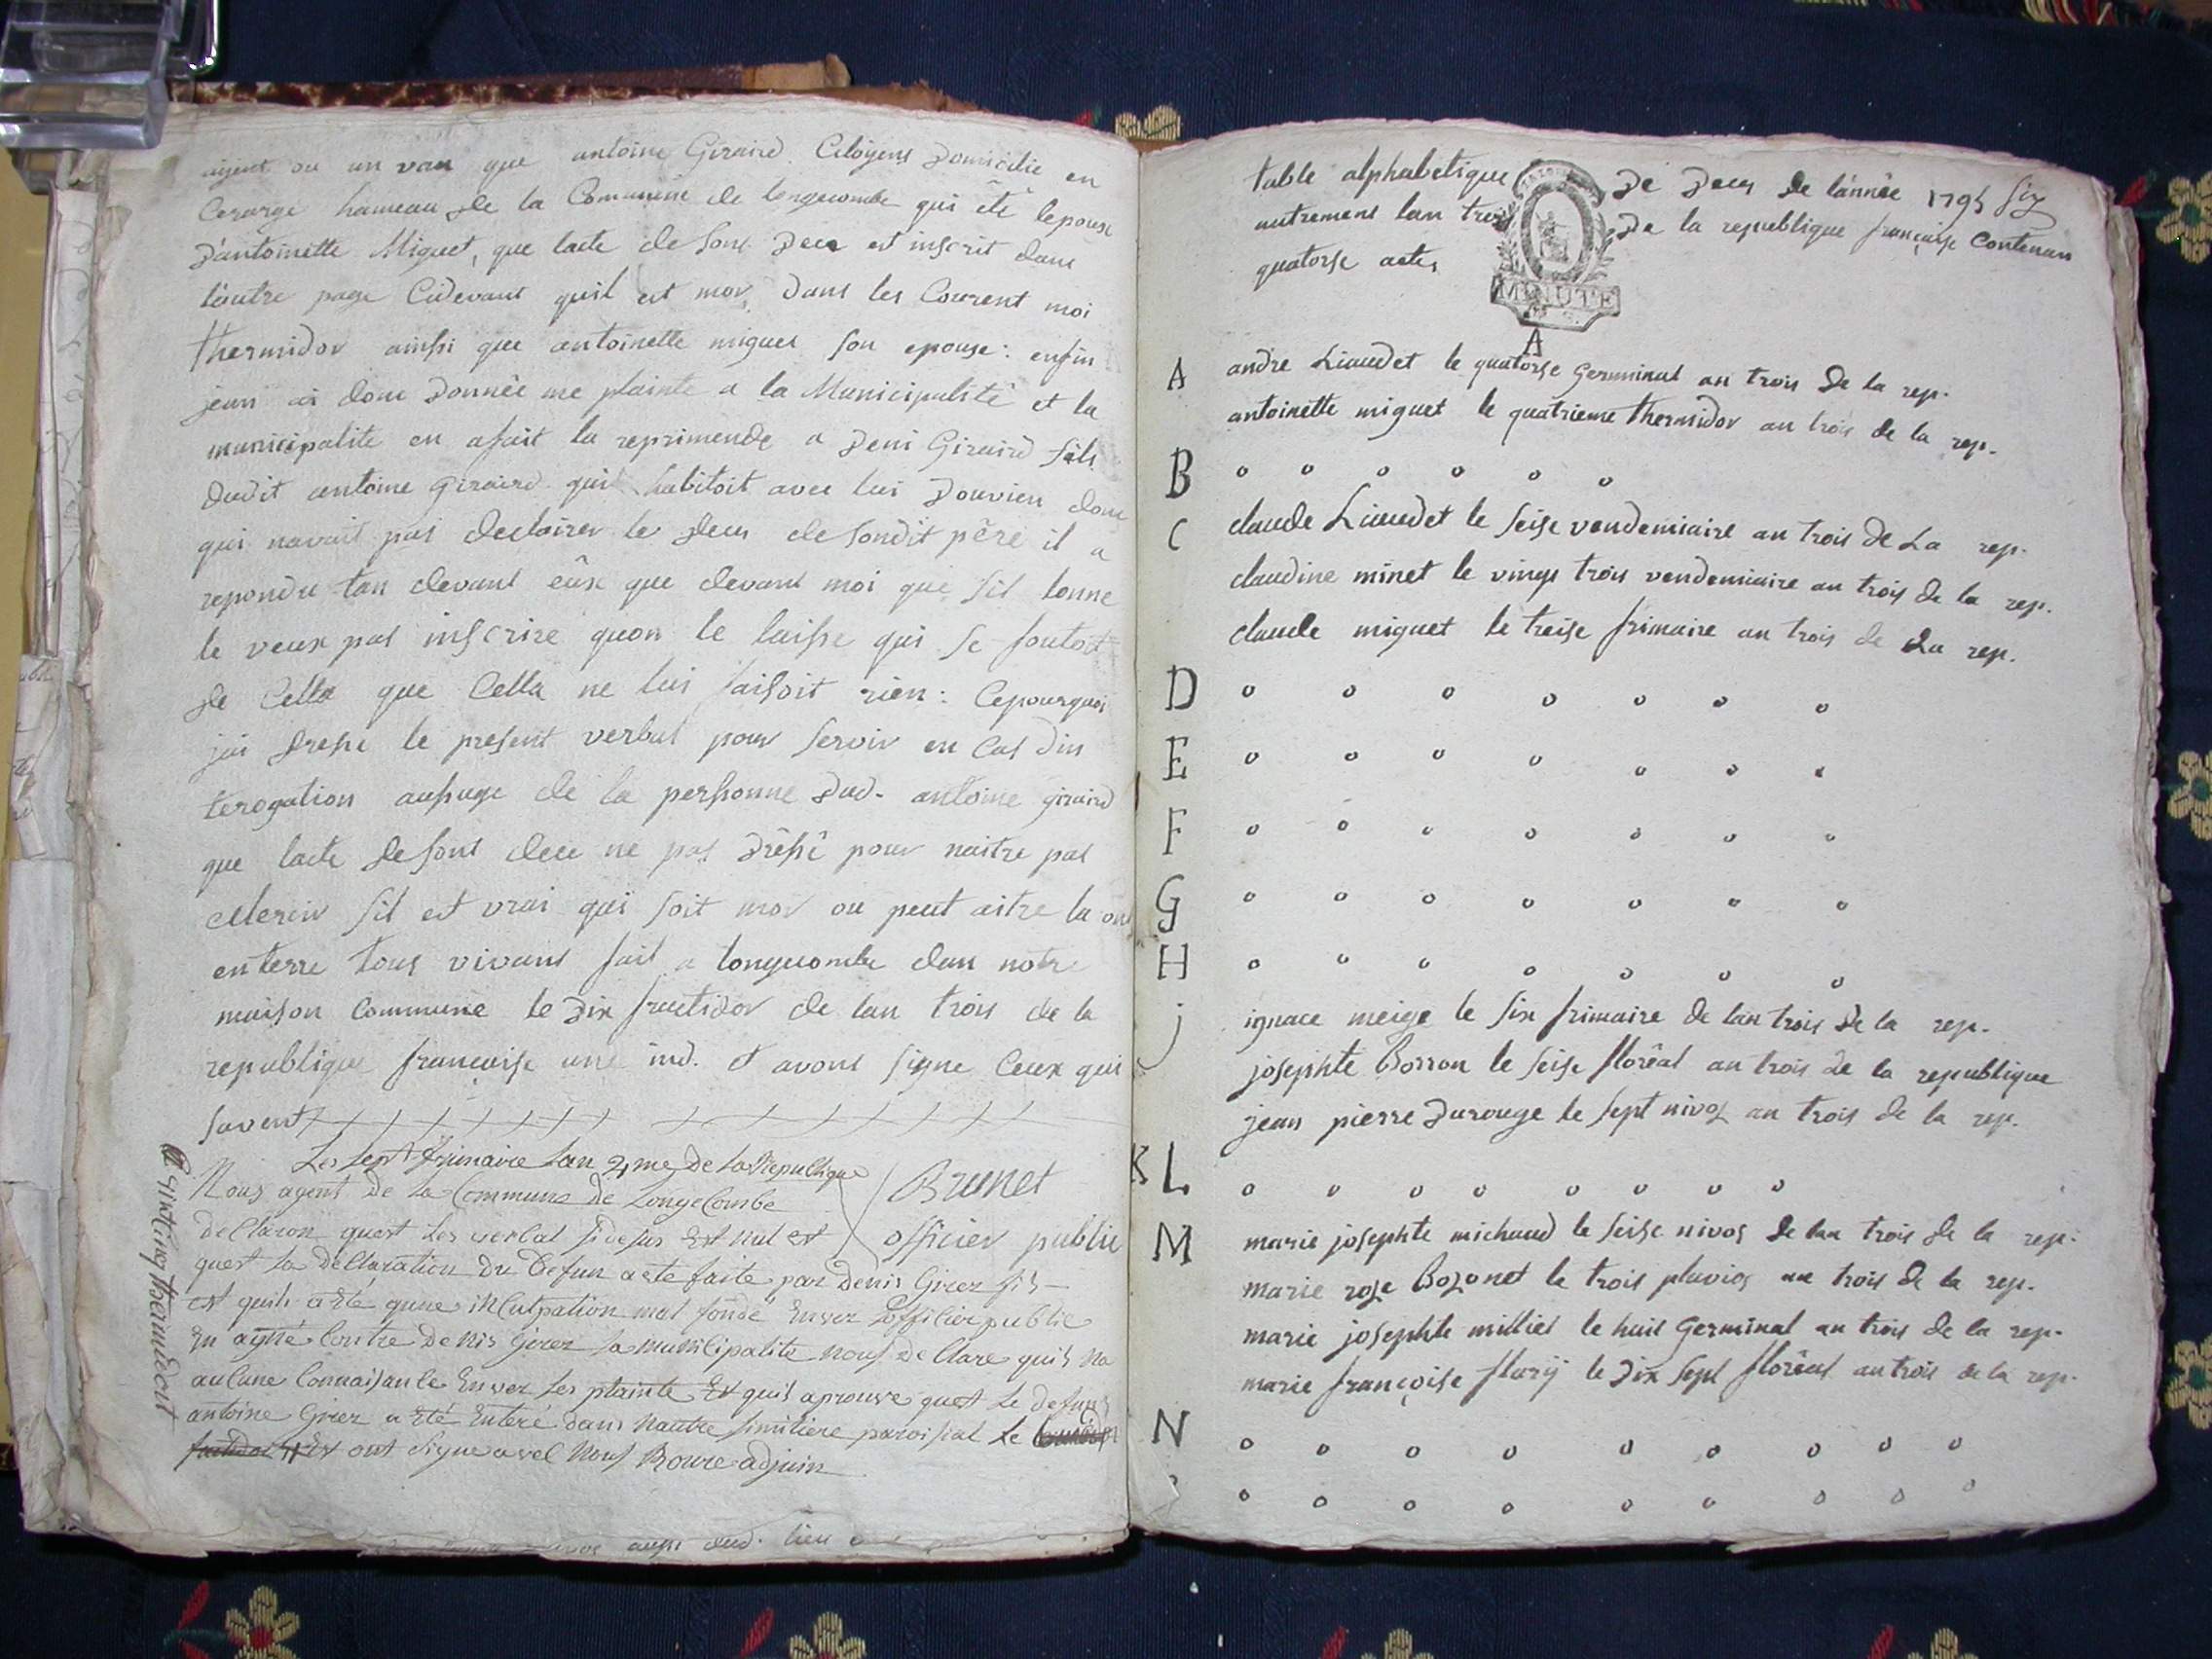 ayent ou un vau que antoine Giraird Citoyens Domicilie en
Cerarge hameau de la Commune de longecombe qui êtê lepoux
D'antoinette Miguet, que lacte de sont Dece est inscrit dans
lautre page Cidevant quil est mor Dans les Courent moi
thermidor ainssi que antoinette miguet son epouse : enfin
jeun ai donc Donnée me plainte a la Municipalité et la
municipalite en afait la reprimende a Deni Giraird fils
dudit antoine Giraird qui habitoit avec lui Douvien donc
qui navait pas declairer le deces de sondit père il a
repondu tan devant eûx que devant moi que sil lonne
le veux pas inscrire quon le laisse qui se foutoit
de Cella que Cella ne lui faisoit rien : Cepourquoi
jai dresse le present verbal pour servir en Cas din
terogation aupuge de la personne Dud. antoine giraird
que lacte de sont dece ne pas drêssê pour naitre pas
sil est vrai qui soit mor ou peut aitre la on
enterre tous vivans fait a longecombe dan notre
maison Commune le Dix fructidor de lan trois de la
republique francaise une ind. et avons signe Ceux qui
savent
Les sept frimaire Lan 4me de la Republique
Nous agent de la Commune de Longe Combe
declaron quest Les verbal sidesus Est nul est
quest la declaration du defun a ete faite par denis Girer fis
est quil a Eté qune inculpation mal fondé Enver Lofficier public
En a contre denis Girer la municipalite nous declare quis na
aucune Connaisance Enver Les plainte Et quis aprouve quest Le defunt
antoine Girer a Eté Enteré dans nautre simitiere paroisial Le
Et ont signe avec nous Roure adjoin
Brunet
officier public
quint thermidort
aussi dud. lieu
table alphabetique De Deces de lánnée 1795 siz
autrement lan trois De la republique française Contenan
quatorse actes
MINUTE
A
A andre Liaudet le quatorse Germinal an trois de la rep.
antoinette miguet le quatrieme thermidor an trois de la rep.
B o o o o o o
C claude Liaudet le seise vendemiaire an trois de La rep.
claudine minet le vingt trois vendemiaire an trois de la rep.
claude miguet le treise frimaire an trois de La rep.
D o o o o o o o
E o o o o o o o
F o o o o o o o
G o o o o o o o
H o o o o o o o
j ignace meige le six frimaire de lan trois de la rep.
josephte Borron le seise florêal an trois de la republique
jean pierre Durouge le sept nivoz an trois de la rep.
K L o o o o o o o o
M marie josephte michaud le seise nivos de lan trois de la rep.
marie roze Bozonet le trois pluvios an trois de la rep.
marie josephte milliet le huit Germinal an trois de la rep.
marie françoise flurij le Dix sept florêal an trois de la rep.
N o o o o o o o o o
o o o o o o o o o